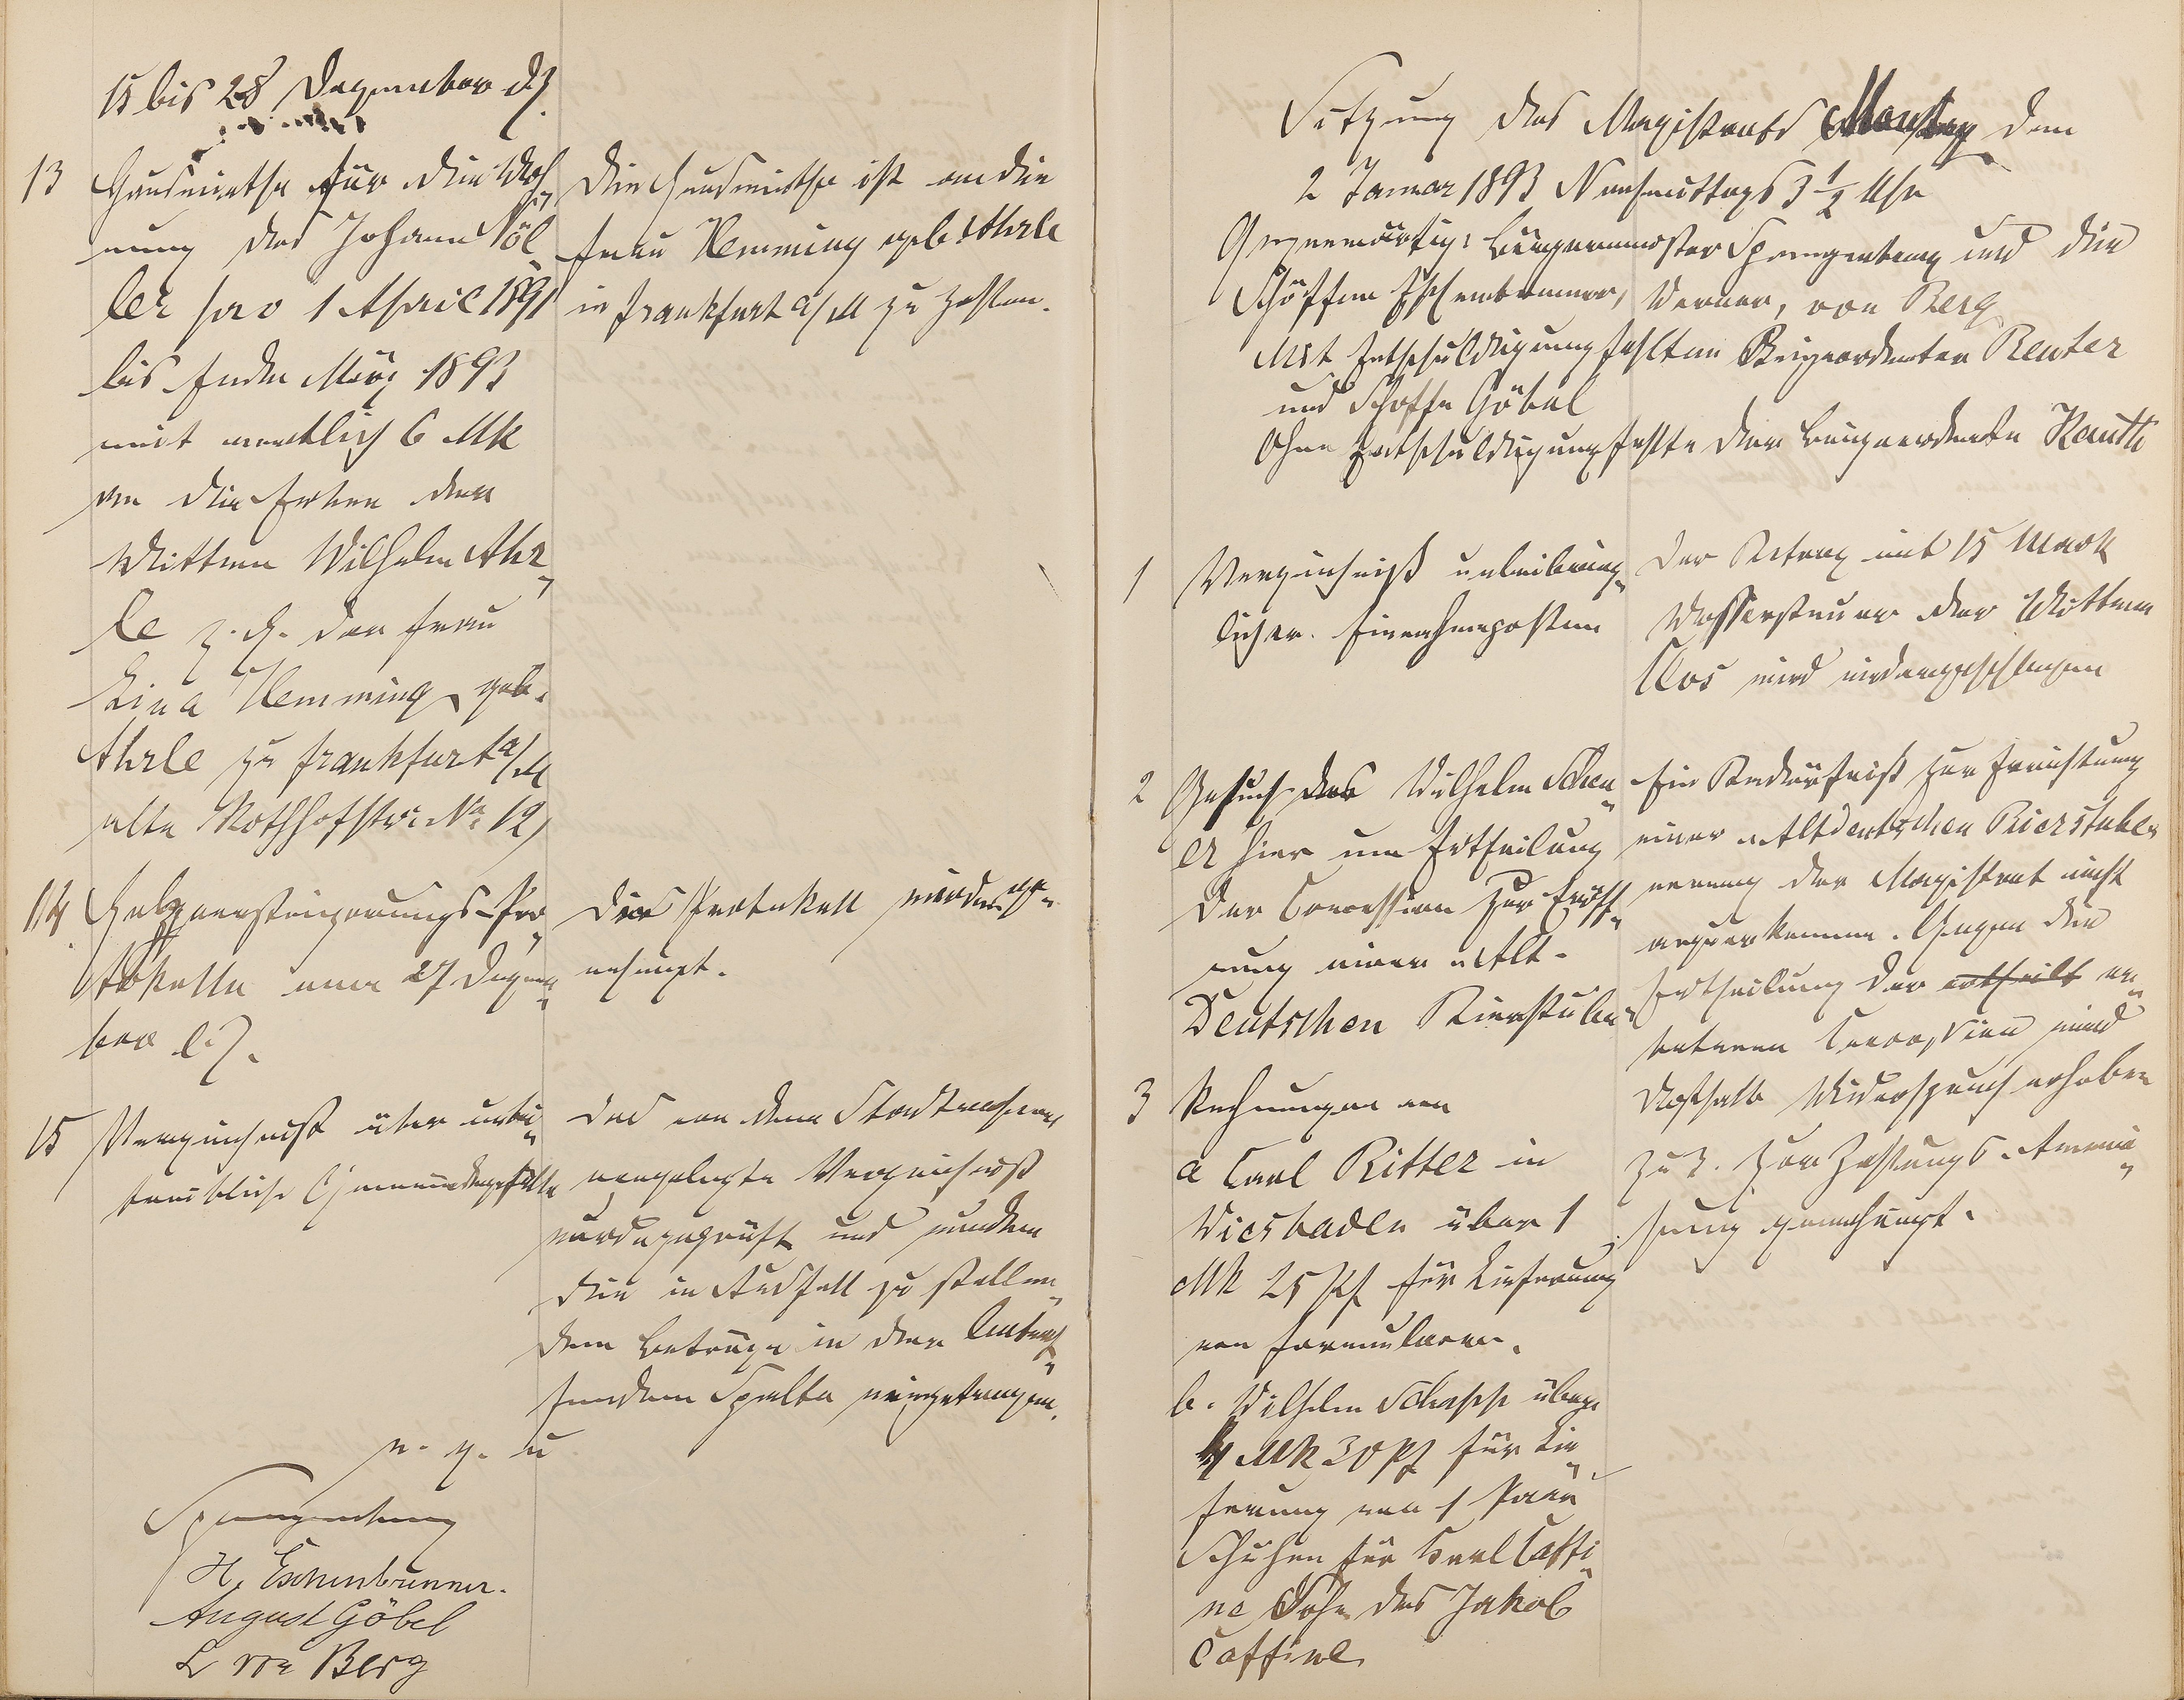 15 bis 28 Dezember dJ.
13 Hausmiethe für die Woh„
nung des Johann Völ„
ler pro 1 April 1891
bis Ende März 1893
mit monatlich 6 Mk
an die Erben der
Wittwe Wilhelm Ahr„
le z. H. der Frau
Lina Hemming geb.
Ahrle zu Frankfurt a/M
alte Rothhofstr. No 12)
Die Hausmiethe ist an die
Frau Hemming geb. Ahrle
in Frankfurt a/M zu zahlen.
14 Holzversteigerungs-Pro„
tokolle vom 27 Dezem„
ber l. J.
Die Protokoll wurden ge„
nehmigt.
15 Verzeichniß über unbei„
treibliche Gemeindegefälle
Das von dem Stadtrechner
vorgelegte Verzeichniß
wurde geprüft und wurden
die in Ausfall zu stellen„
den Beträge in der betref„
fenden Spalte eingetragen.
v. g. u
Spangenberg
H. Eschenbrenner.
August Göbel
L von Berg
Sitzung des Magistrats Montag den
2 Januar 1893 Nachmittags 3 1/2 Uhr
Gegenwärtig: Bürgermeister Spangenberg und die
Schöffen Eschenbrenner, Werner, von Berg
Mit Entschuldigung fehlten Beigeordneter Reuter
und Schöffe Göbel
Ohne Entschuldigung fehlte der Beigeordnete Kauth
1 Verzeichniß unbeibring„
licher Einnahmeposten
Der Betrag mit 15 Mark
Wassersteuer der Wittwe
Clos wird niedergeschlagen
2 Gesuch des Wilhelm Scheu„
er hier um Ertheilung
der Concession zur Eröff„
nung einer „Alt-
Deutschen Bierstube“
Ein Bedürfniß zur Errichtung
einer „Altdeutschen Bierstube“
vermag der Magistrat nicht
anzuerkennen. Gegen die
Ertheilung der ertheilt er„
betenen Concession wird
deshalb Widerspruch erhoben
3 Rechnungen von
a Carl Ritter in
Wiesbaden über 1
Mk 25 Pf für Lieferung
von Formularen.
b. Wilhelm Schapp über
4 Mk 30 Pf für Lie„
ferung von 1 Paar
Schuhen für Karl Caffi„
ne Sohn des Jakob
Caffine
Zu 3. Zur Zahlungs-Anwei„
sung genehmigt.